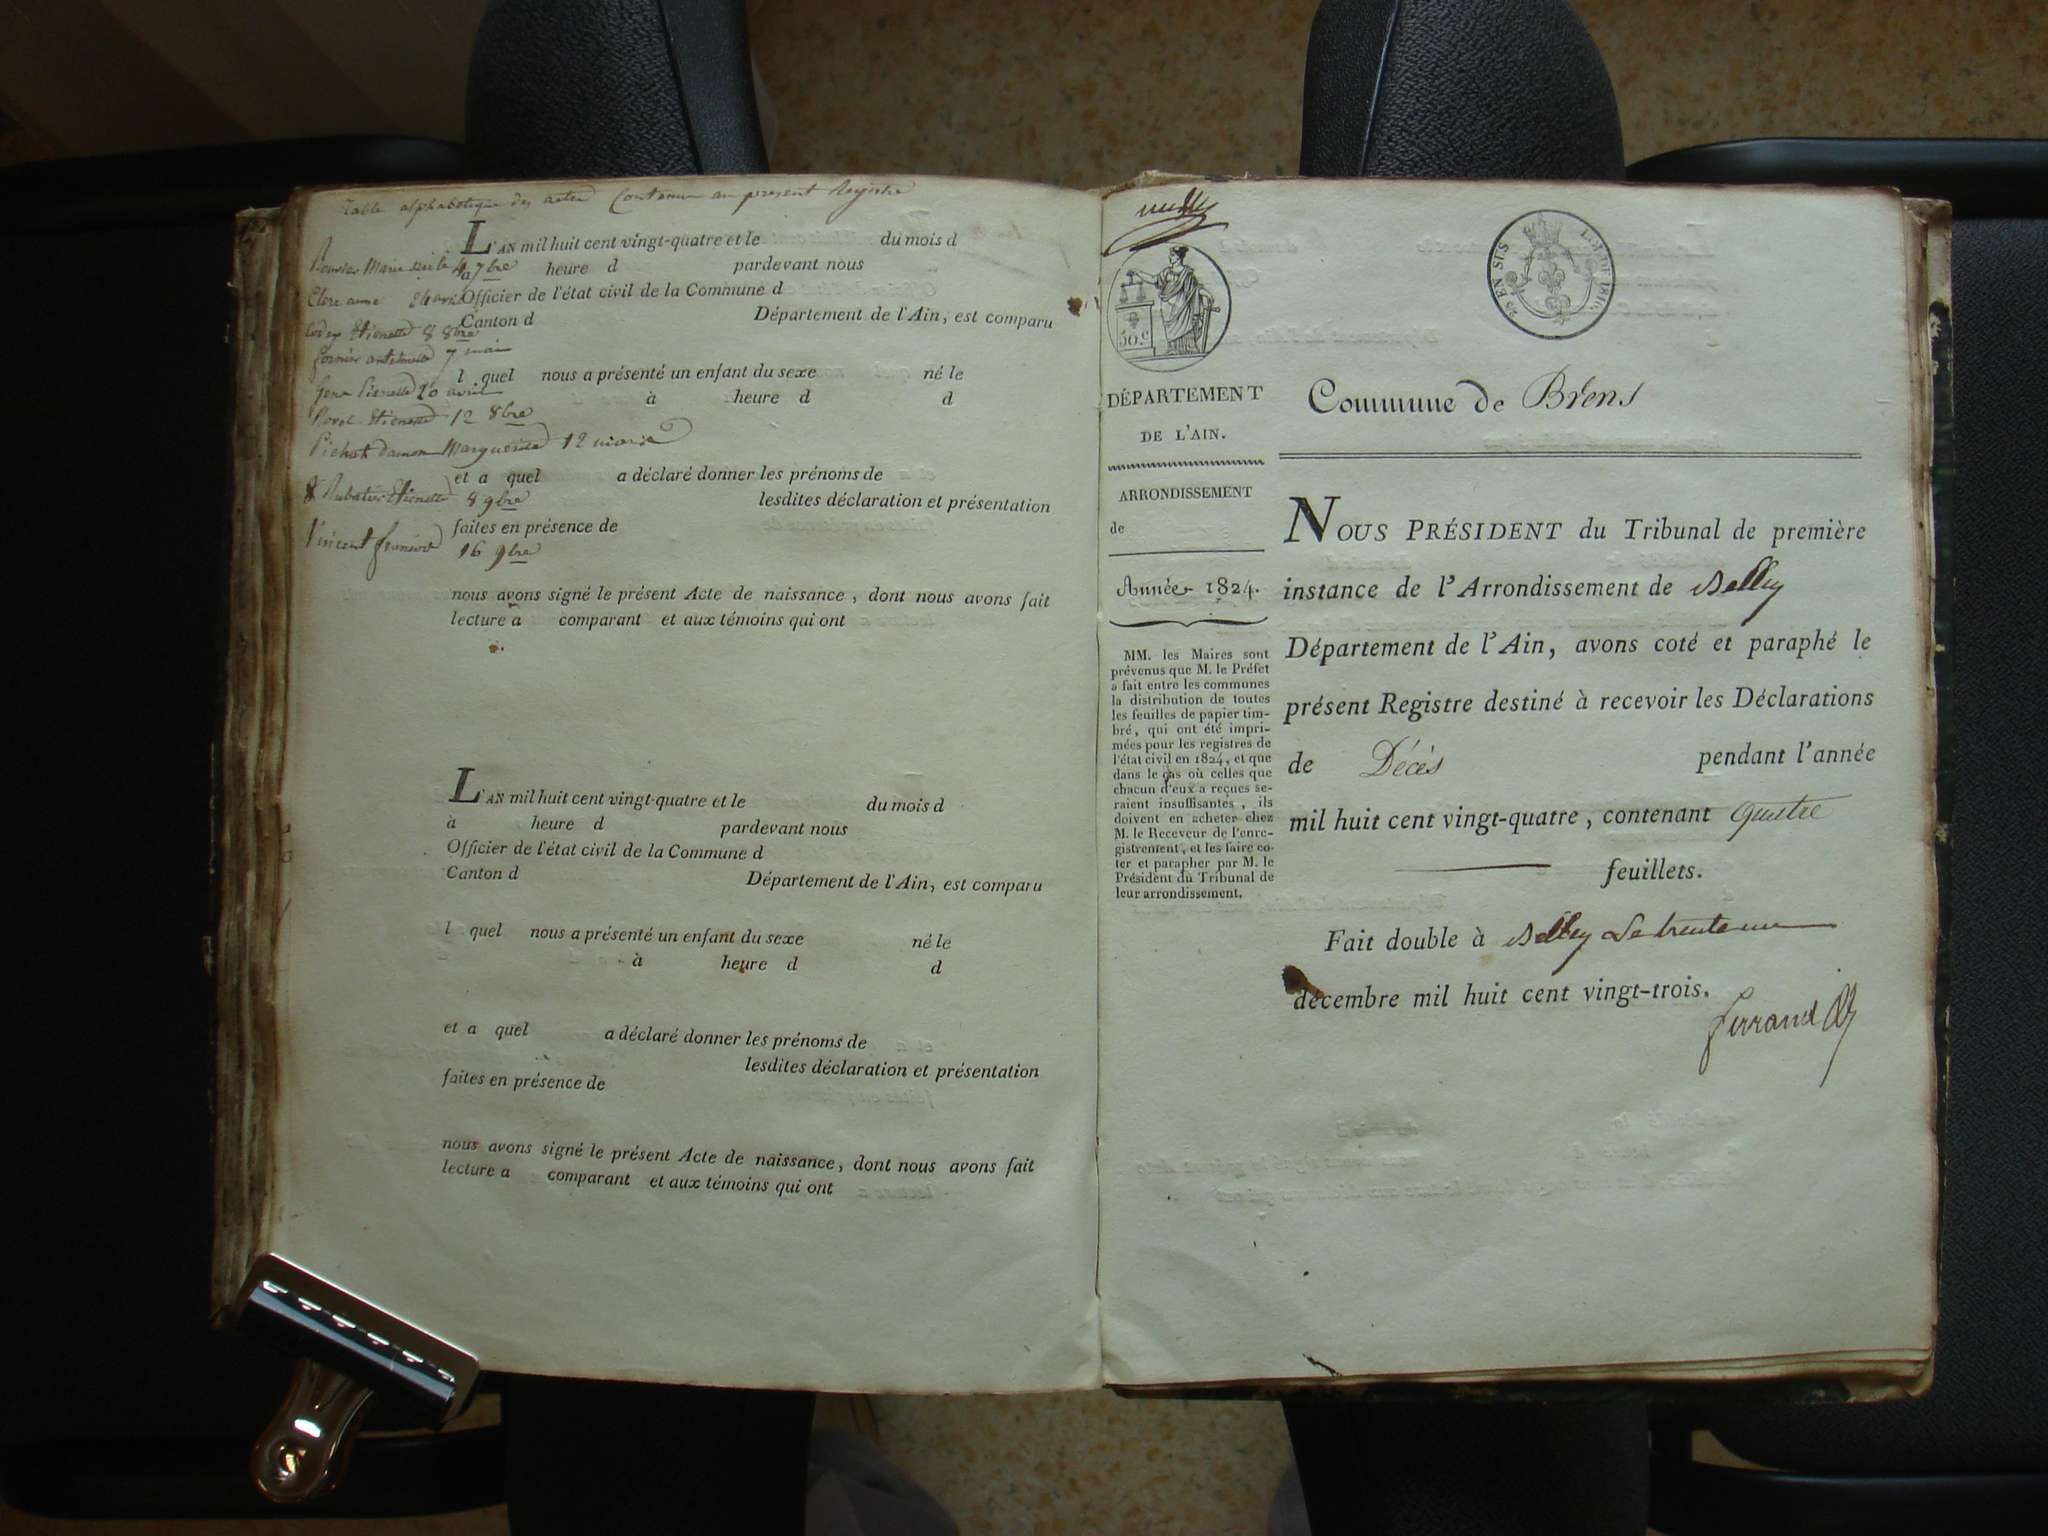 Table alphabetique des actes Contenu au present Registre
L'AN mil huit cent vingt-quatre et le du mois d
Bouvier Marie 4 7bre
à heure d pardevant nous
Clerc anne
Officier de l'état civil de la Commune d
Canton d Département de l'Ain, est comparu
Etiennette 8 8bre
antelmette 7 mai
l quel nous a présenté un enfant du sexe né le
Pierrette 20 avril
à heure d d
Etiennette 12 8bre
Pichat damon Marguerite 12
et a quel a déclaré donner les prénoms de
Rubatier Etiennette 8 9bre
lesdites déclaration et présentation
faites en présence de
Vincent 16 9bre
nous avons signé le présent Acte de naissance, dont nous avons fait
lecture a comparant et aux témoins qui ont
L'AN mil huit cent vingt-quatre et le du mois d
à heure d pardevant nous
Officier de l'état civil de la Commune d
Canton d Département de l'Ain, est comparu
l quel nous a présenté un enfant du sexe né le
à heure d d
et a quel a déclaré donner les prénoms de
lesdites déclaration et présentation
faites en présence de
nous avons signé le présent Acte de naissance, dont nous avons fait
lecture a comparant et aux témoins qui ont
50 c
25 EN SUS
L. DE 1816.
DÉPARTEMENT
DE L'AIN.
ARRONDISSEMENT
de
Année 1824.
MM. les Maires sont
prévenus que M. le Préfet
a fait entre les communes
la distribution de toutes
les feuilles de papier tim-
bré, qui ont été impri-
mées pour les registres de
l'état civil en 1824, et que
dans le cas où celles que
chacun d'eux a reçues se-
raient insuffisantes, ils
doivent en acheter chez
M. le Receveur de l'enre-
gistrement, et les faire co-
ter et parapher par M. le
Président du Tribunal de
leur arrondissement.
Commune de Brens
NOUS PRÉSIDENT du Tribunal de première
instance de l'Arrondissement de Belley
Département de l'Ain, avons coté et paraphé le
présent Registre destiné à recevoir les Déclarations
de Décès pendant l'année
mil huit cent vingt-quatre, contenant Quatre
feuillets.
Fait double à Belley Le trente un
décembre mil huit cent vingt-trois.
Ferrand